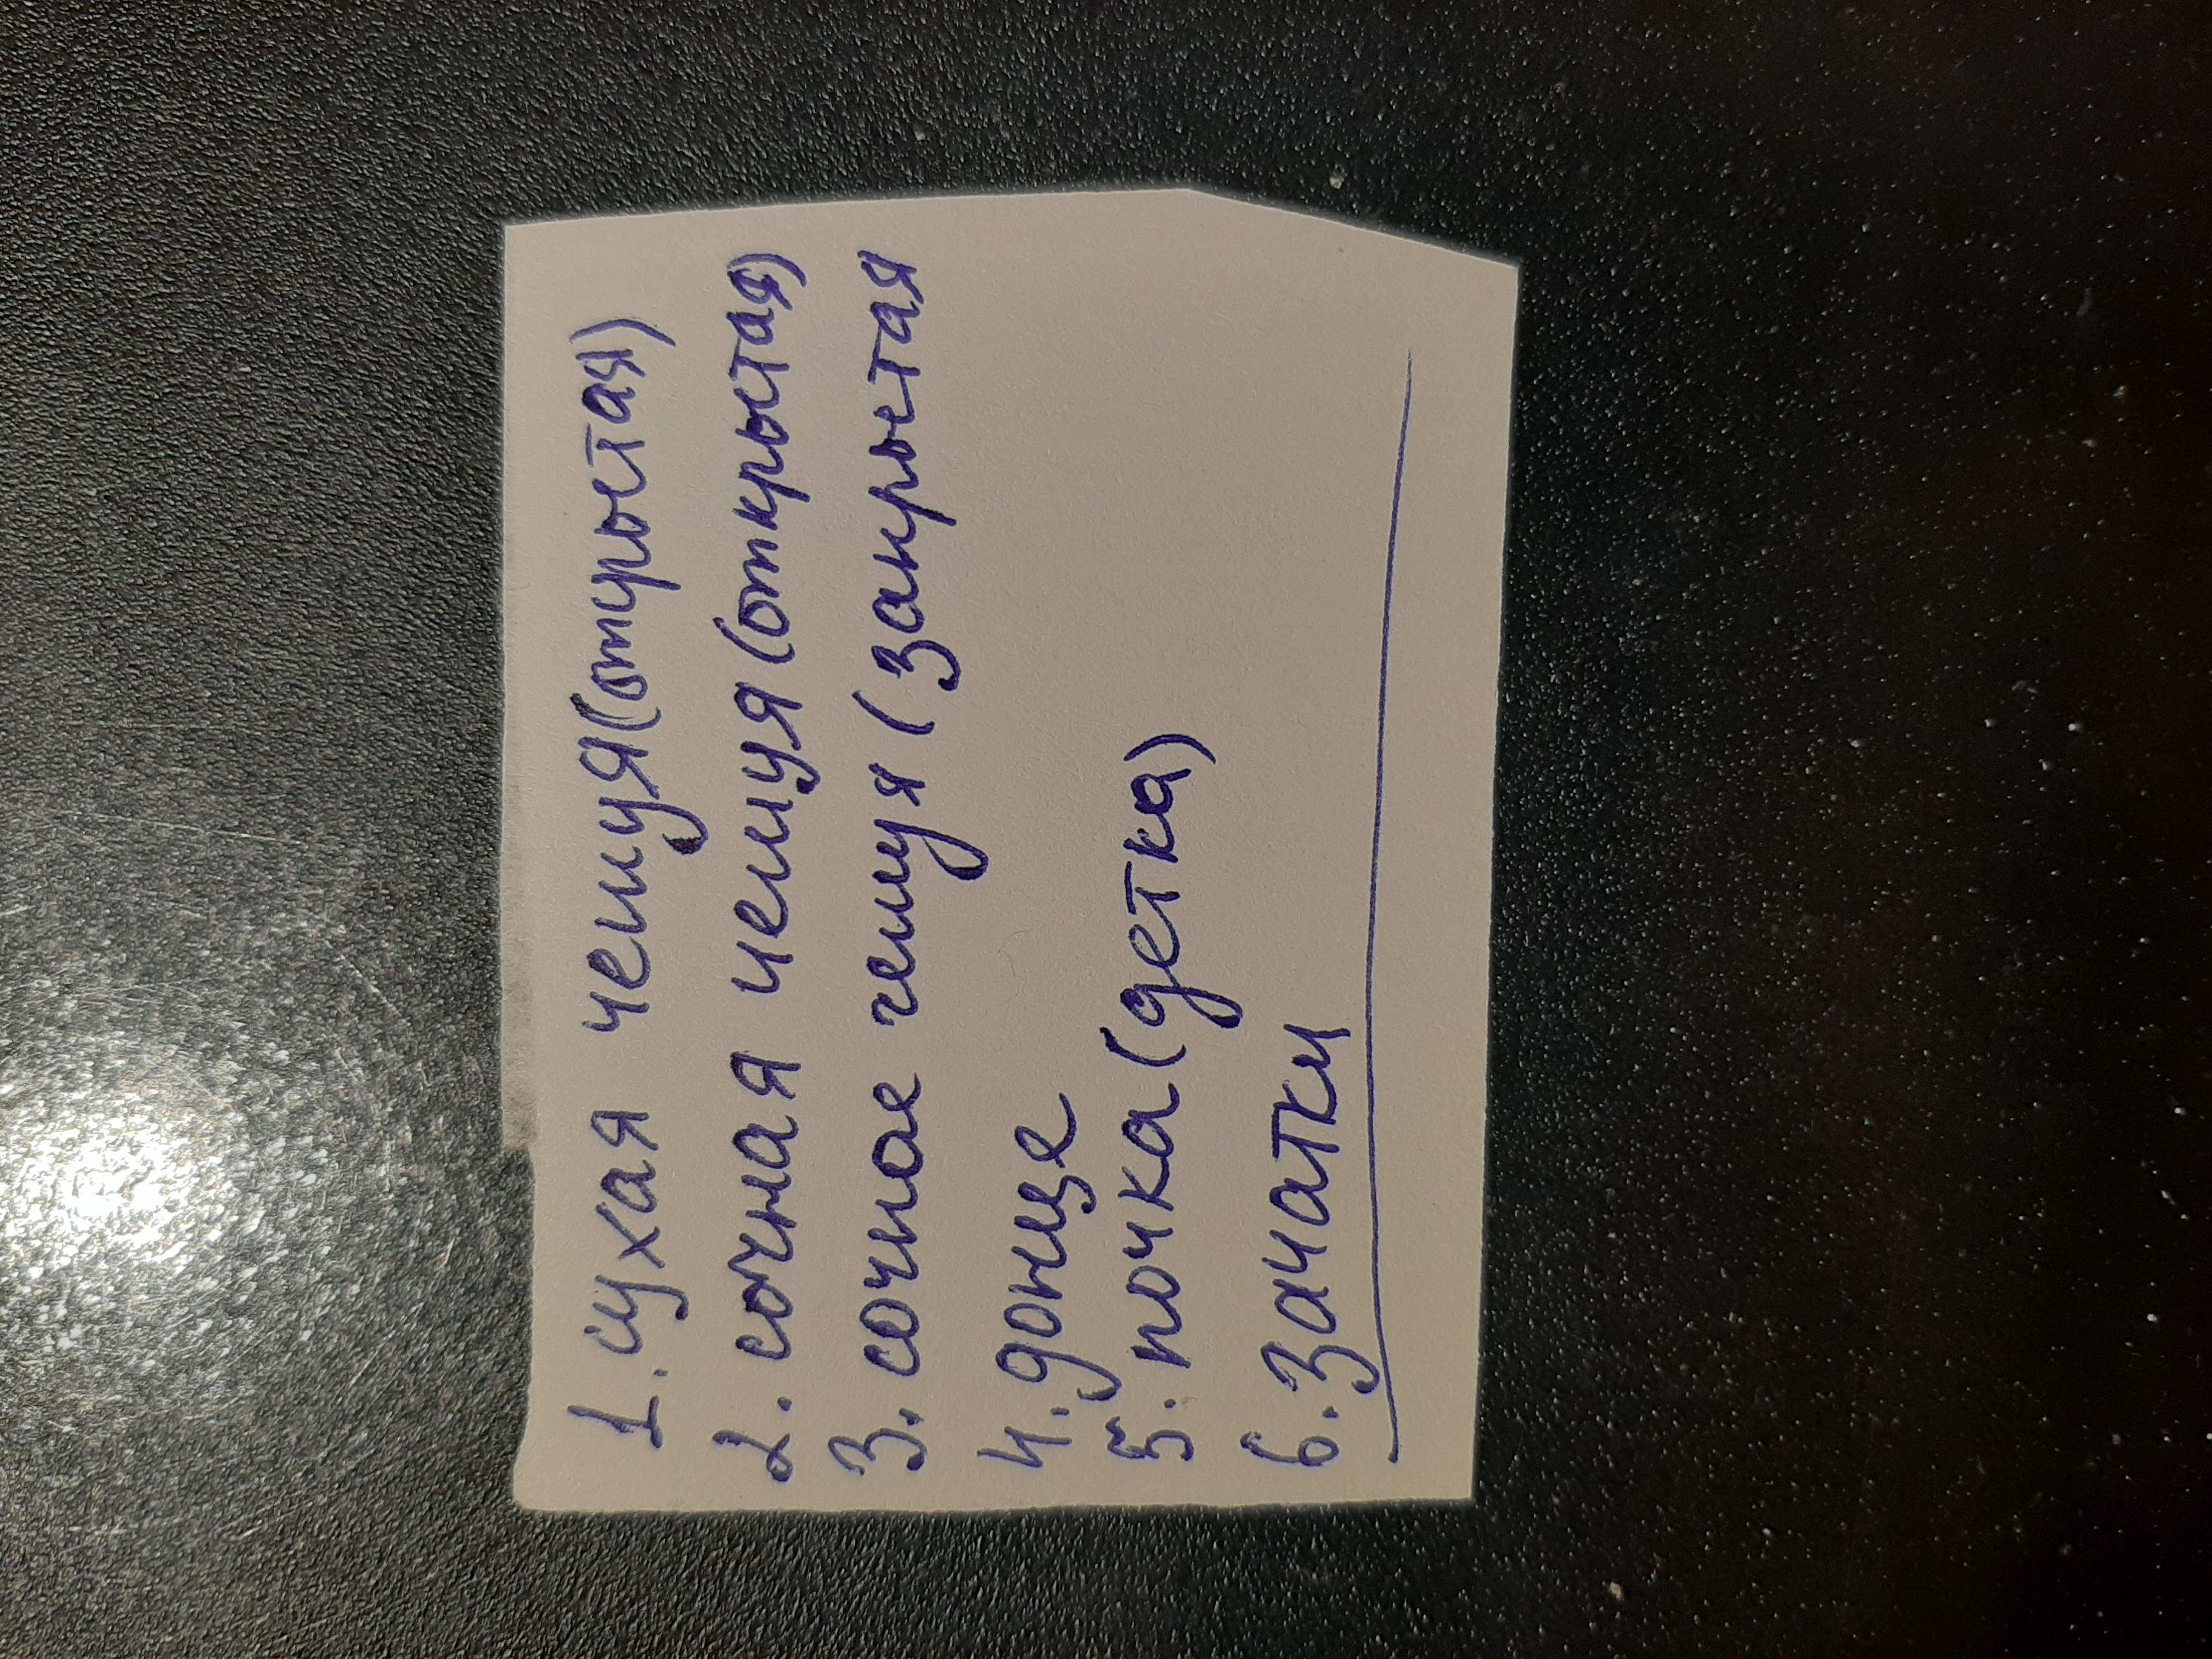 1. сухая чешуя (открытая)
2. сочная чешуя (открытая)
3. сочное чешуя (закрытая
4. донце
5. почка (детка)
6. зачатки